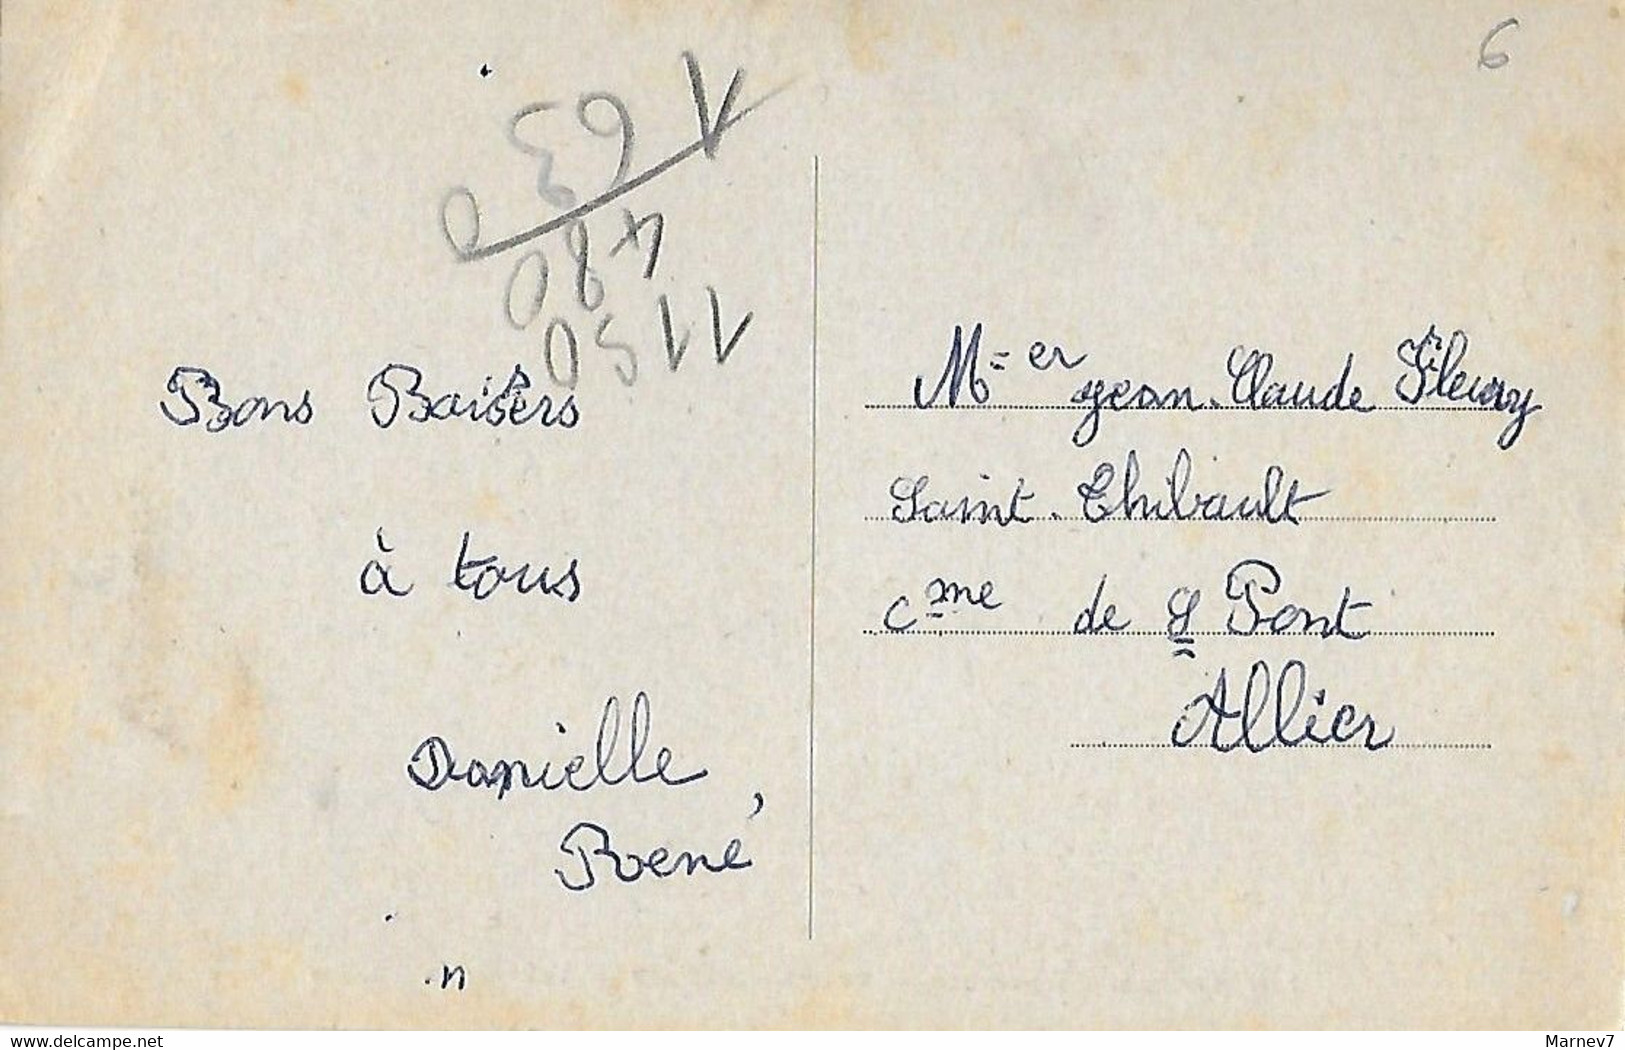 6
1150
480
63
Bons Baisers
à tous
Danielle,
René
n
M=er Jean-Claude Fleury
Saint-Thibault
Cme de St Pont
Allier
delcampe.net
Marnev7